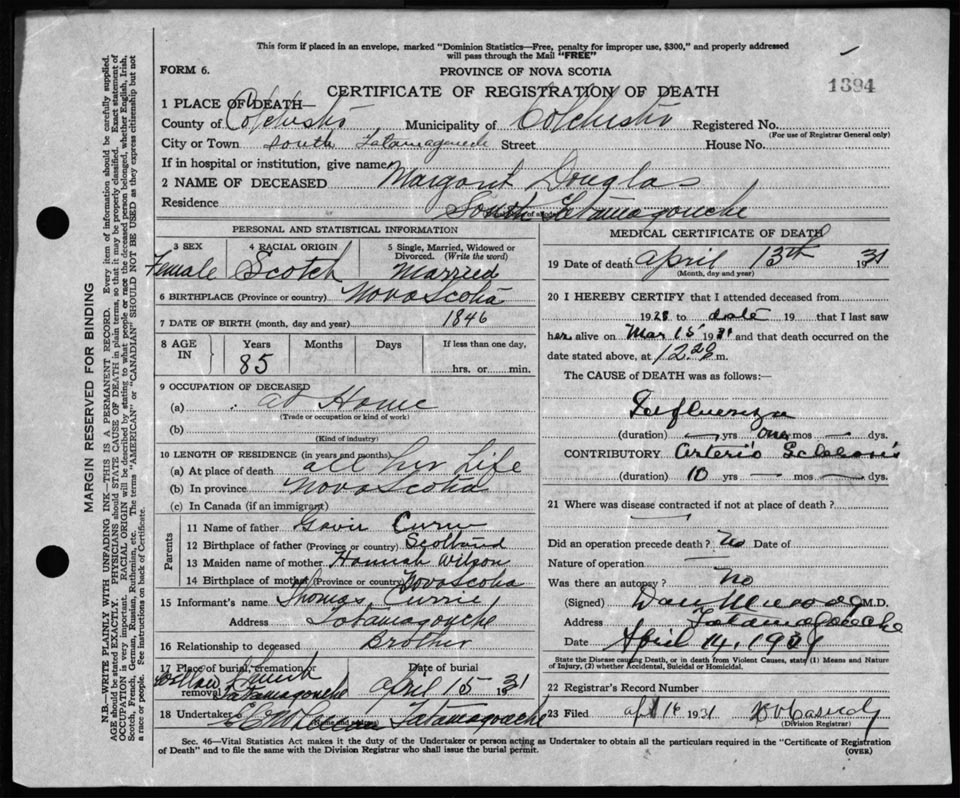 This form if placed in an envelope, marked "Dominion Statistics—Free, penalty for improper use, $300," and properly addressed
will pass through the Mail "FREE"
FORM 6.
PROVINCE OF NOVA SCOTIA
1394
CERTIFICATE OF REGISTRATION OF DEATH
1 PLACE OF DEATH—
County of Colchester Municipality of Colchester Registered No.
(For use of Registrar General only)
City or Town South Tatamagouche Street House No.
If in hospital or institution, give name
2 NAME OF DECEASED Margaret Douglas
Residence South Tatamagouche
PERSONAL AND STATISTICAL INFORMATION
3 SEX 4 RACIAL ORIGIN 5 Single, Married, Widowed or
Divorced. (Write the word)
Female Scotch Married
6 BIRTHPLACE (Province or country) Nova Scotia
7 DATE OF BIRTH (month, day and year) 1846
8 AGE IN Years Months Days If less than one day,
85 hrs. or min.
9 OCCUPATION OF DECEASED
(a) at Home
(Trade or occupation or kind of work)
(b)
(Kind of industry)
10 LENGTH OF RESIDENCE (in years and months)
(a) At place of death all her life
(b) In province Nova Scotia
(c) In Canada (if an immigrant)
Parents
11 Name of father Currie
12 Birthplace of father (Province or country) Scotland
13 Maiden name of mother Hannah Wilson
14 Birthplace of mother (Province or country) Nova Scotia
15 Informant's name Thomas Currie
Address Tatamagouche
16 Relationship to deceased Brother
17 Place of burial, cremation or
removal Tatamagouche
Date of burial
April 15 1931
18 Undertaker Tatamagouche
MEDICAL CERTIFICATE OF DEATH
19 Date of death April 13th 1931
(Month, day and year)
20 I HEREBY CERTIFY that I attended deceased from
1928 to date 19 that I last saw
her alive on Mar 15 1931 and that death occurred on the
date stated above, at 12 m.
The CAUSE of DEATH was as follows:
Influenza
(duration) — yrs one mos — dys.
CONTRIBUTORY Arterio Sclerosis
(duration) 10 yrs — mos — dys.
21 Where was disease contracted if not at place of death?
Did an operation precede death? No Date of
Nature of operation
Was there an autopsy? No
(Signed) Dan Murray M.D.
Address Tatamagouche
Date April 14, 1931
State the Disease causing Death, or in death from Violent Causes, state (1) Means and Nature
of Injury, (2) whether Accidental, Suicidal or Homicidal.
22 Registration Record Number
23 Filed April 16 1931
(Division Registrar)
Sec. 46—Vital Statistics Act makes it the duty of the Undertaker or person acting as Undertaker to obtain all the particulars required in the "Certificate of Registration
of Death" and to file the same with the Division Registrar who shall issue the burial permit. (OVER)
MARGIN RESERVED FOR BINDING
N.B.—WRITE PLAINLY WITH UNFADING INK—THIS IS A PERMANENT RECORD. Every item of information should be carefully supplied.
AGE should be stated EXACTLY. PHYSICIANS should STATE CAUSE OF DEATH in plain terms, so that it may be properly classified. Exact statement of
OCCUPATION is very important. RACIAL ORIGIN will be described by stating to what people or race the deceased person belonged, whether English, Irish,
Scotch, French, German, Russian, Ruthenian, etc. The terms "AMERICAN" or "CANADIAN" SHOULD NOT BE USED as they express citizenship but not
a race or people. See instructions on back of Certificate.